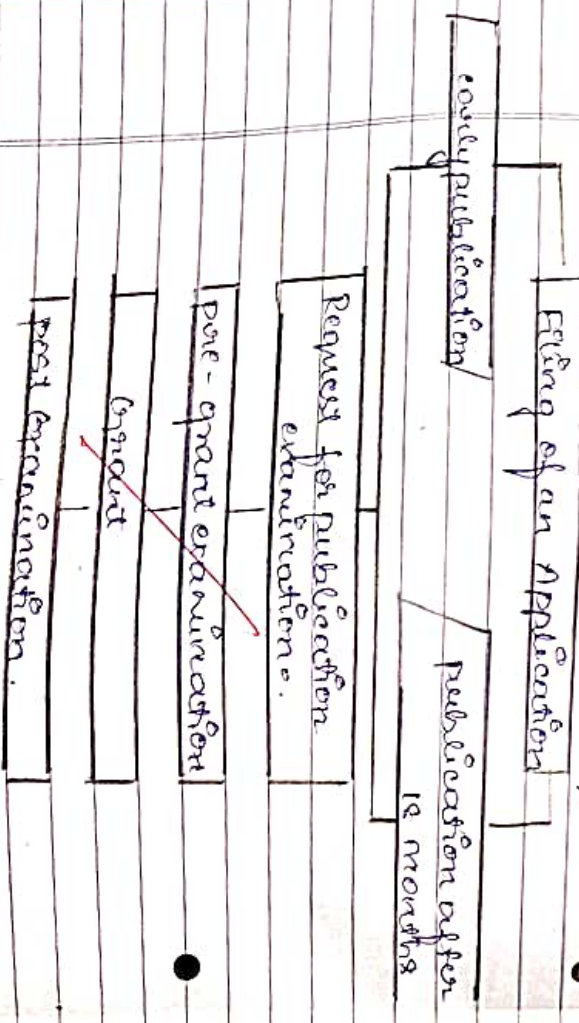 Filing of an Application
early publication
publication after
18 months
Request for publication
examination.
pre-grant examination
Grant
post examination.